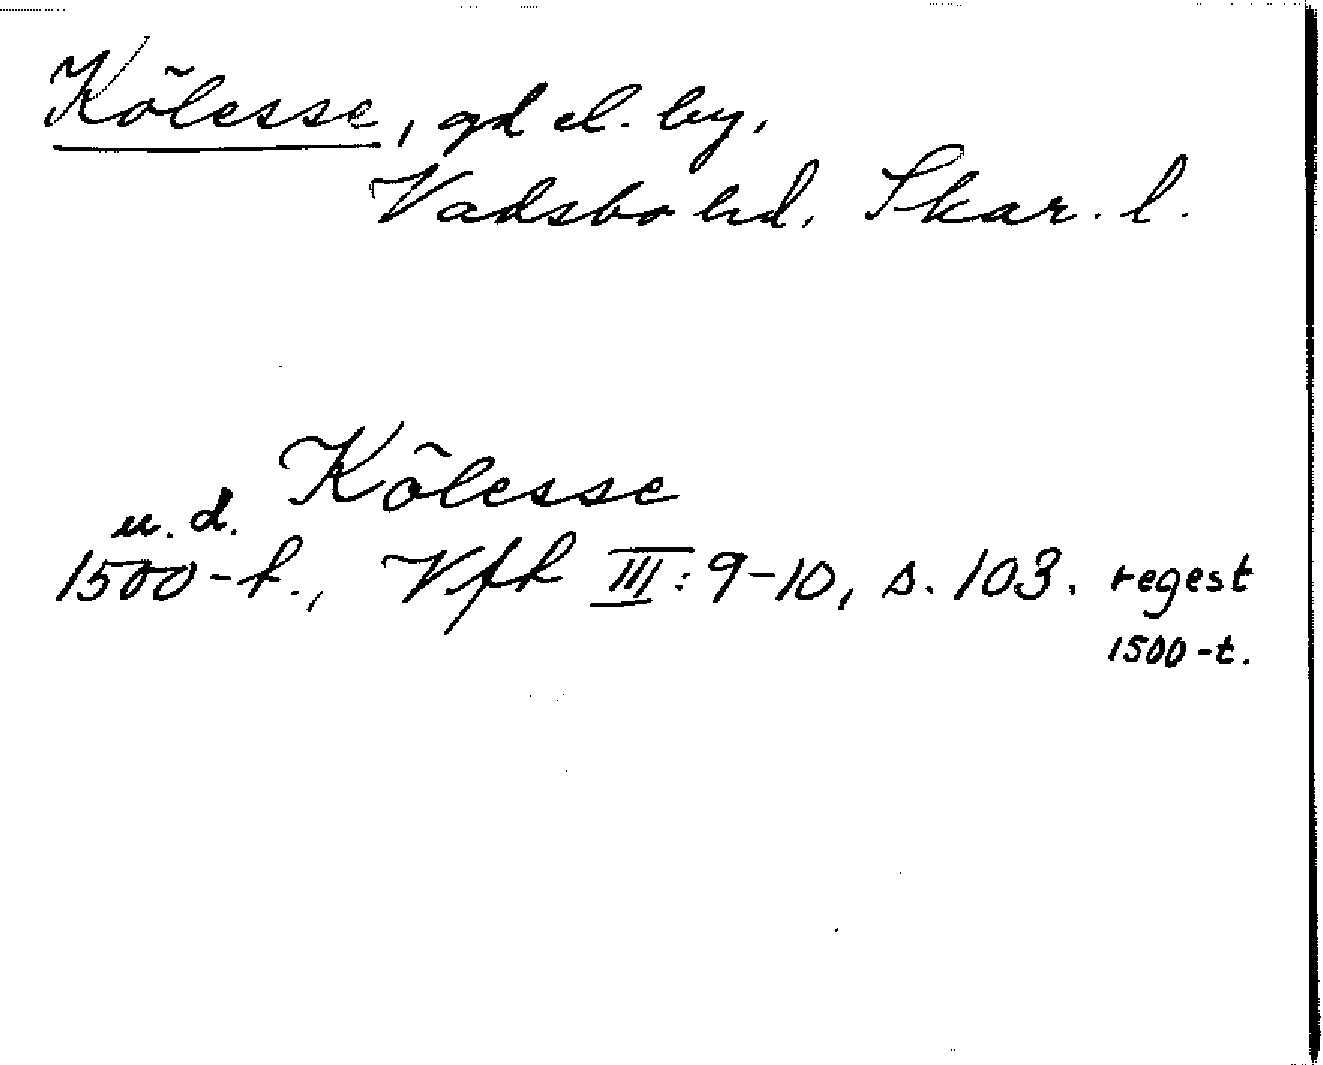 Kõlesse, gd el. by,
Vadsbo hd, Skar. l.
Kõlesse
u. d.
1500-t., Vfh III: 9-10, s. 103. regest
1500-t.